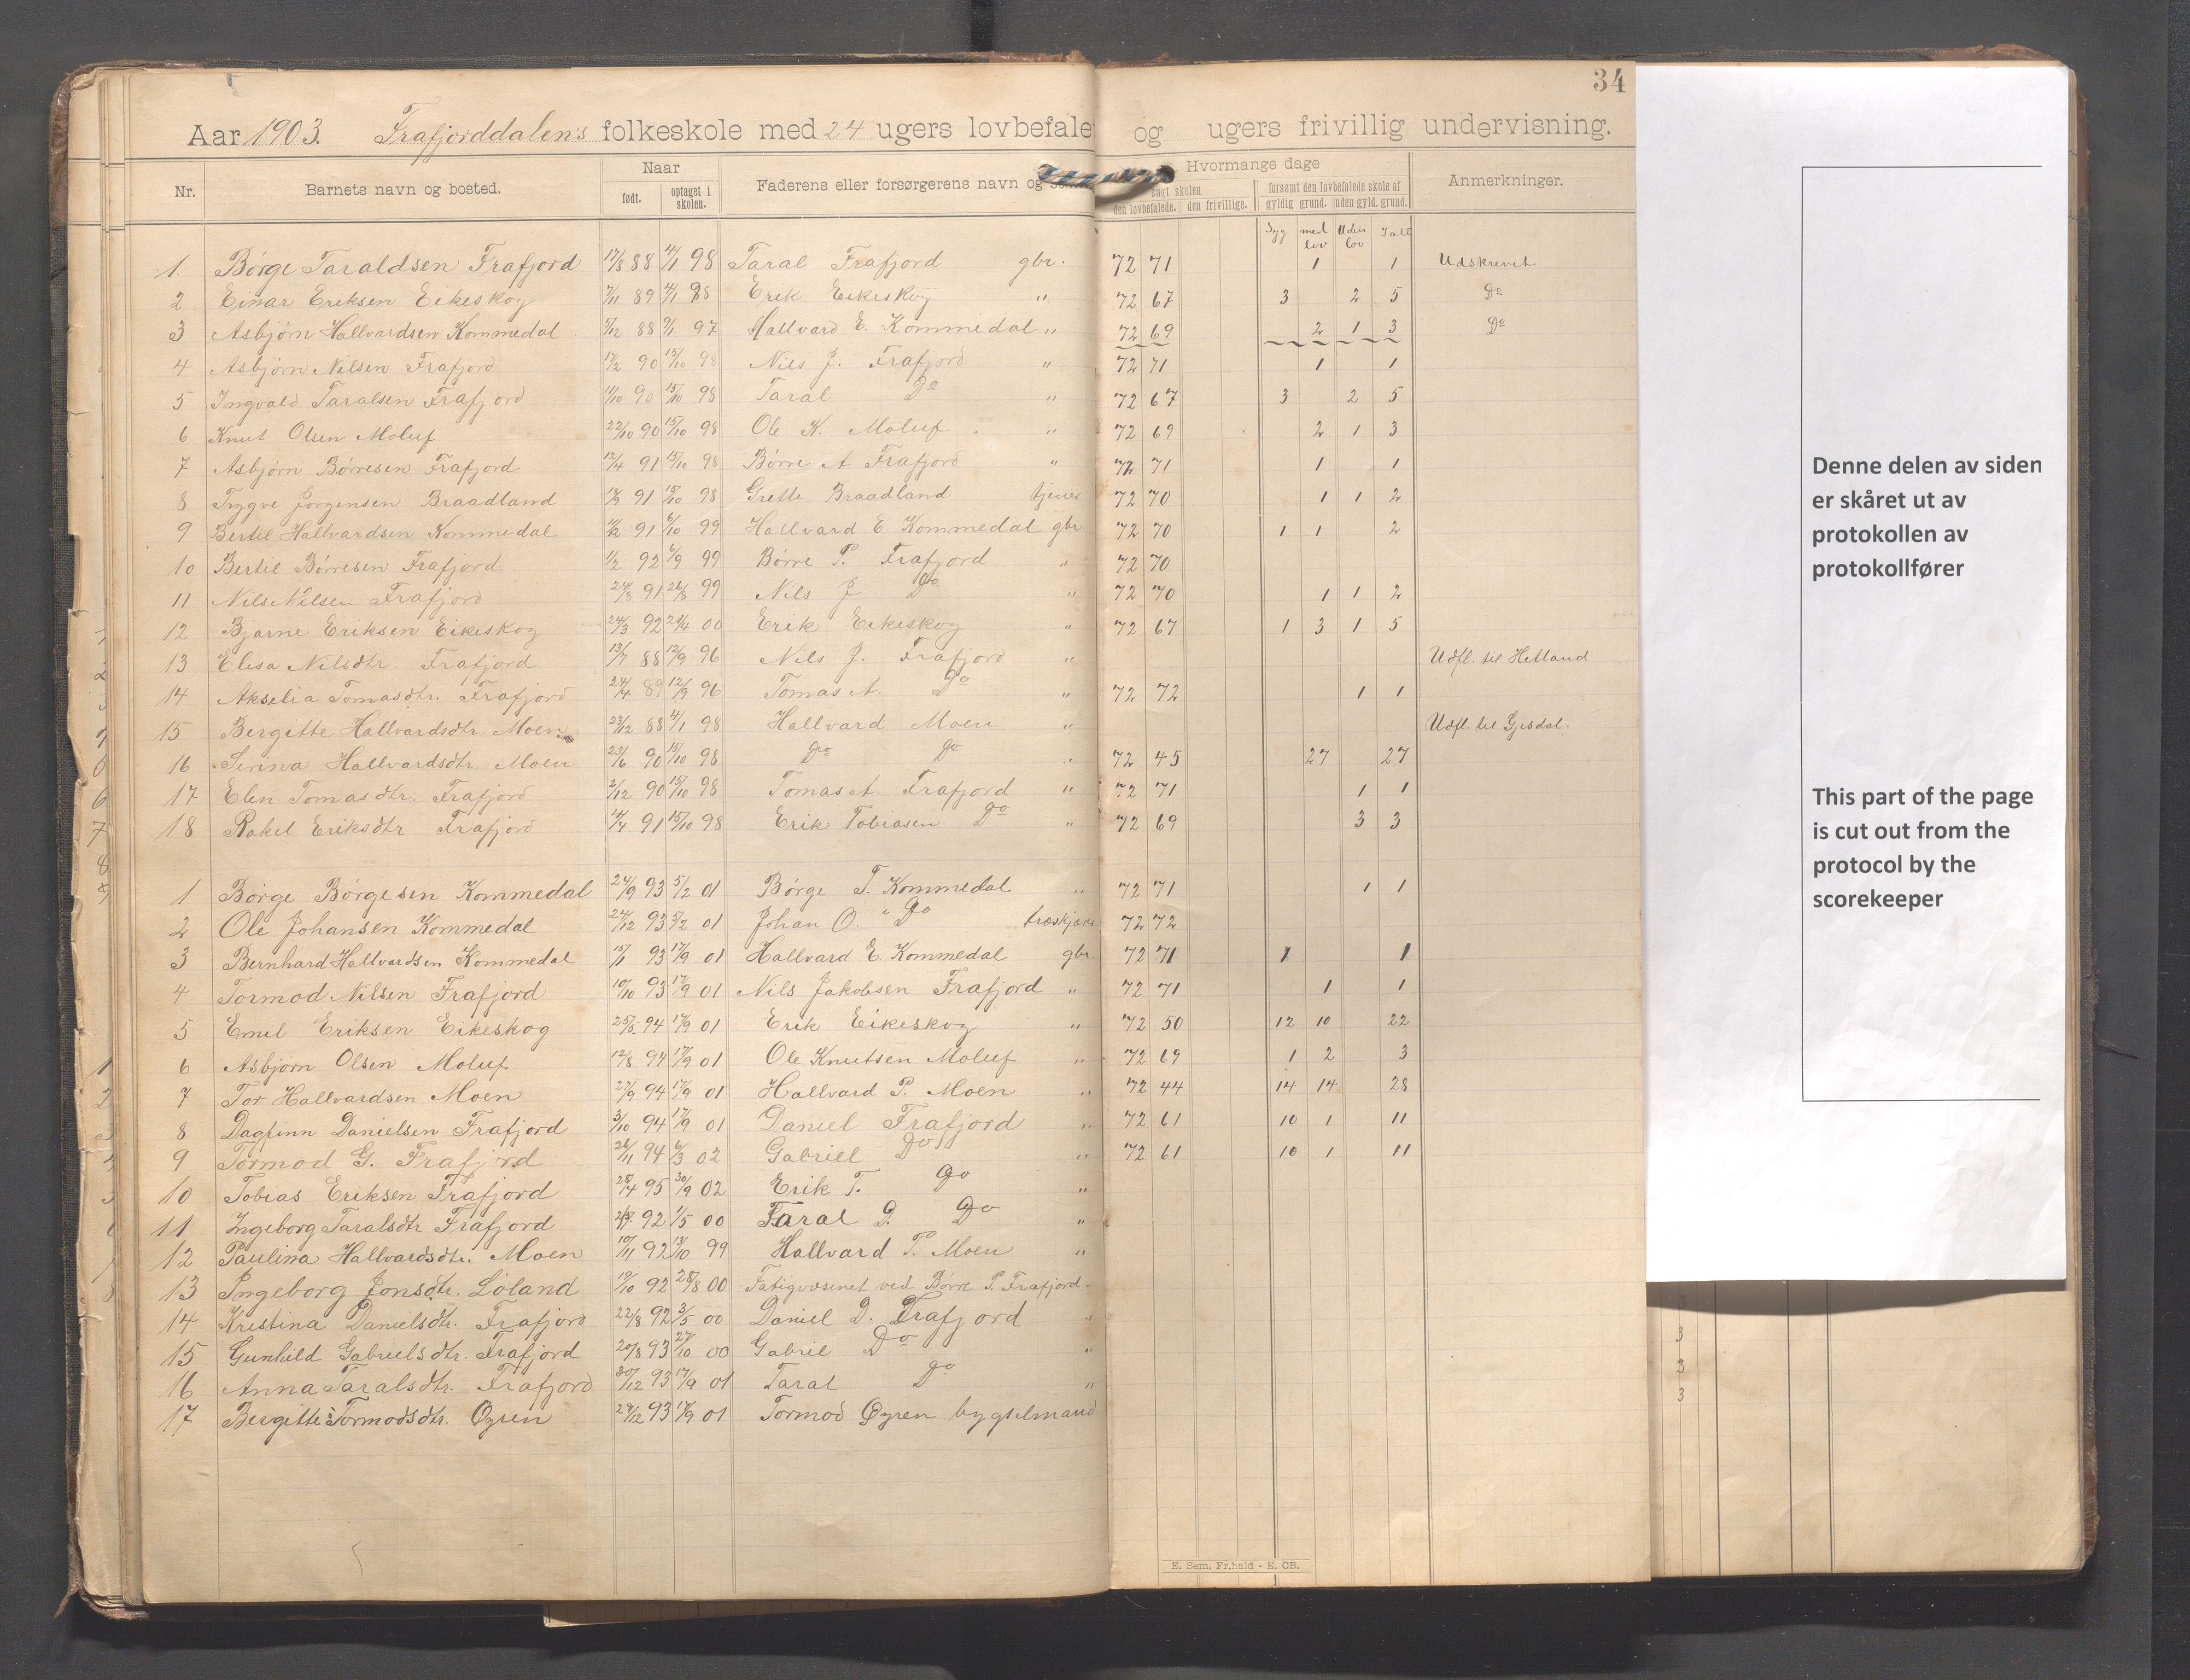 34
Aar 1903. Trafjorddalens folkeskole med 24 ugers lovbefale og ugers frivillig undervisning.
Nr. Barnets navn og bosted. Naar født. optaget i skolen. Faderens eller forsørgerens navn og Hvormange dage søgt skolen den lovbefalede. den frivillige. forsømt den lovbefalede skole af gyldig grund. uden gyld. grund. Anmerkninger.
Syg med lov Uden lov Ialt
1. Børge Taraldsen Frafjord 17/8 88 4/1 98 Taral Frafjord gbr. 72 71 1 1 Udskrevet
2 Einar Eriksen Eikeskog 7/11 89 4/1 98 Erik Eikeskog " 72 67 3 2 5 Do
3 Asbjørn Hallvardsen Kommedal 5/12 88 9/1 97 Hallvard E. Kommedal " 72 69 2 1 3 Do
4 Asbjørn Nilsen Frafjord 17/2 90 15/10 98 Nils J. Frafjord " 72 71 1 1
5 Ingvald Taralsen Frafjord 11/10 90 15/10 98 Taral Do " 72 67 3 2 5
6 Knut Olsen Moluf 22/10 90 15/10 98 Ole K. Moluf " 72 69 2 1 3
7 Asbjørn Børresen Frafjord 12/4 91 15/10 98 Børre A Frafjord " 72 71 1 1
8 Trygve Jørgensen Braadland 91 15/10 98 Grette Braadland tjener 72 70 1 1 2
9 Bertil Hallvardsen Kommedal 91 6/10 99 Hallvard E Kommedal gbr 72 70 1 1 2
10 Bertil Børresen Frafjord 1/2 92 6/9 99 Børre P. Frafjord " 72 70
11 Nils Nilsen Frafjord 24/8 91 26/8 99 Nils J Do " 72 70 1 1 2
12 Bjarne Eriksen Eikeskog 24/3 92 24/4 00 Erik Eikeskog " 72 67 1 3 1 5
13 Elisa Nilsdtr. Frafjord 13/7 88 12/9 96 Nils J. Frafjord " Udfl. til Hetland
14 Akselia Tomasdtr. Frafjord 24/4 89 12/9 96 Tomas A. Do " 72 72 1 1
15 Bergitte Hallvardsdtr. Moen 23/12 88 4/1 98 Hallvard Moen " Udfl. til Gjesdal.
16 Serina Hallvardsdtr. Moen 23/6 90 15/10 98 Do Do " 72 45 27 27
17 Elen Tomasdtr. Frafjord 2/12 90 15/10 98 Tomas A. Frafjord " 72 71 1 1
18 Rakel Eriksdtr Frafjord 14/4 91 15/10 98 Erik Tobiasen Do " 72 69 3 3
1 Børge Børgesen Kommedal 24/9 93 5/2 01 Børge T. Kommedal " 72 71 1 1
2 Ole Johansen Kommedal 24/12 93 5/2 01 Johan O. " Do træskjærer 72 72
3 Bernhard Hallvardsen Kommedal 15/1 93 17/9 01 Hallvard E. Kommedal gbr. 72 71 1 1
4 Tormod Nilsen Frafjord 10/10 93 17/9 01 Nils Jakobsen Frafjord " 72 71 1 1
5 Emil Eriksen Eikeskog 94 17/9 01 Erik Eikeskog " 72 50 12 10 22
6 Asbjørn Olsen Moluf 12/8 94 17/9 01 Ole Knutsen Moluf " 72 69 1 2 3
7 Tor Hallvardsen Moen 27/9 94 17/9 01 Hallvard P. Moen " 72 44 14 14 28
8 Dagfinn Danielsen Frafjord 3/10 94 17/9 01 Daniel Frafjord " 72 61 10 1 11
9 Tormod G. Frafjord 26/11 94 6/3 02 Gabriel Do " 72 61 10 1 11
10 Tobias Eriksen Frafjord 28/4 95 30/9 02 Erik T. Do "
11 Ingeborg Taralsdtr Frafjord 92 1/5 00 Taral D. Do "
12 Paulina Hallvardsdtr. Moen 10/11 92 13/10 99 Hallvard P. Moen "
13 Ingeborg Jonsdtr. Løland 19/10 92 28/8 00 Fatigvæsenet ved Børre P. Frafjord
14 Kristina Danielsdtr. Frafjord 22/8 92 3/5 00 Daniel D. Frafjord "
15 Gunhild Gabrielsdtr. Frafjord 20/8 93 27/10 00 Gabriel Do "
16 Anna Taralsdtr. Frafjord 30/12 93 17/9 01 Taral Do "
17 Bergitte Tormodsdtr. Øyren 29/12 93 17/9 01 Tormod Øyren bygselmand
E. Sem. Fr.hald - E. CB.
Denne delen av siden
er skåret ut av
protokollen av
protokollfører
This part of the page
is cut out from the
protocol by the
scorekeeper
3
3
3